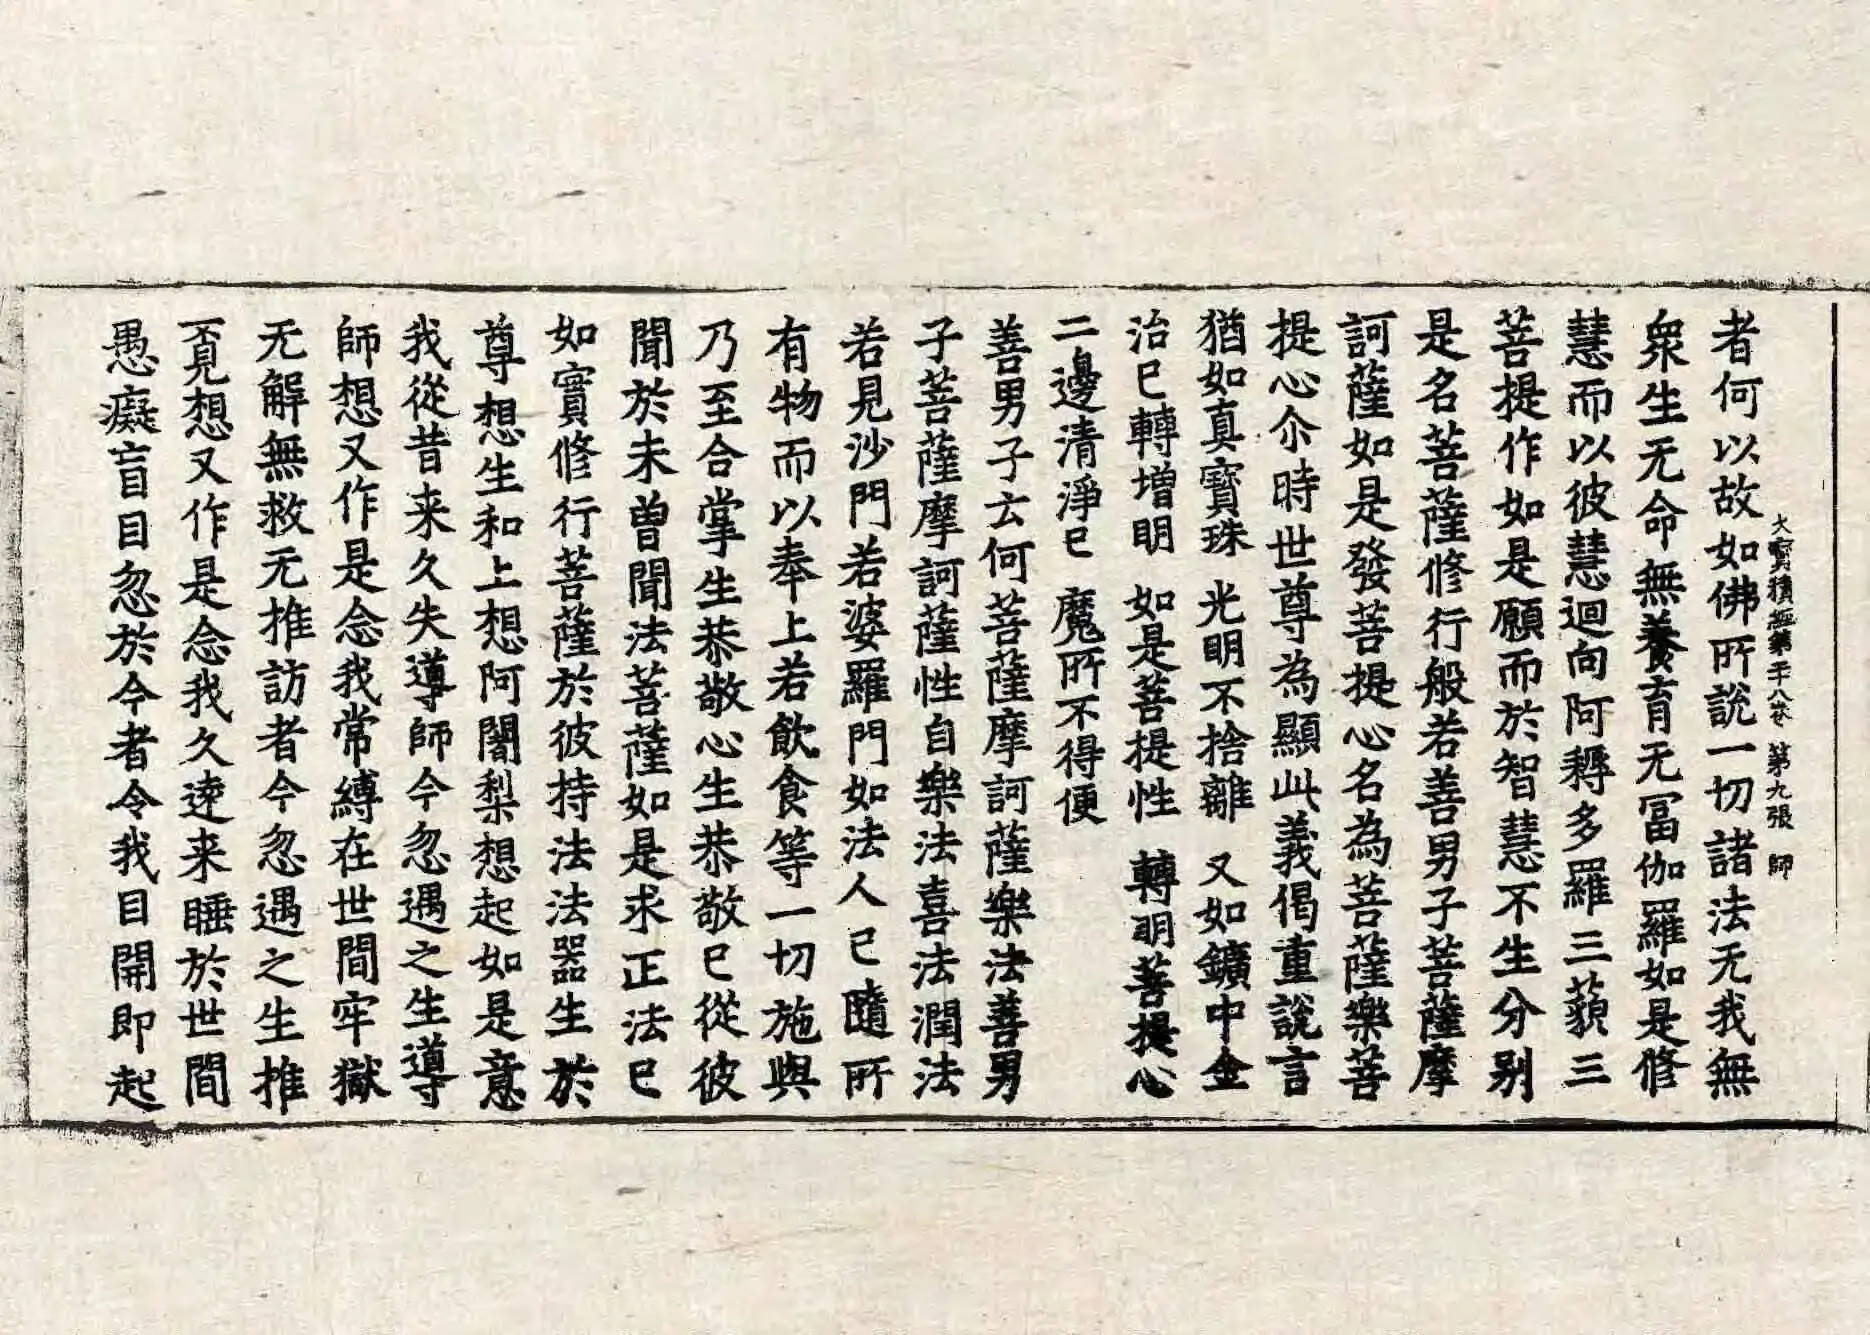 大寶積經第二十八卷 第九張 師
者何以故如佛所說一切諸法无我無
衆生无命無養育无冨伽羅如是修
慧而以彼慧迴向阿耨多羅三藐三
菩提作如是願而於智慧不生分别
是名菩薩修行般若善男子菩薩摩
訶薩如是發菩提心名為菩薩樂菩
提心尒時世尊為顯此義偈重說言
猶如真寶珠 光明不捨離 又如鑛中金
治已轉增明 如是菩提性 轉明菩提心
二邊清淨已 魔所不得便
善男子云何菩薩摩訶薩樂法善男
子菩薩摩訶薩性自樂法喜法潤法
若見沙門若婆羅門如法人已隨所
有物而以奉上若飲食等一切施與
乃至合掌生恭敬心生恭敬已從彼
聞於未曽聞法菩薩如是求正法已
如實修行菩薩於彼持法法器生於
尊想生和上想阿闍梨想起如是意
我從昔来久失導師今忽遇之生導
師想又作是念我常縛在世間牢獄
无解無救无推訪者今忽遇之生推
覔想又作是念我久逺来睡於世間
愚癡盲目忽於今者令我目開即起